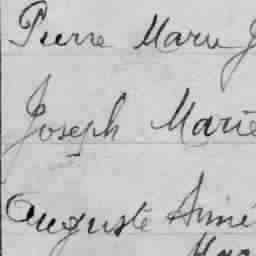 Pierre Marie J
Joseph Marie
Auguste Aimé
Mar